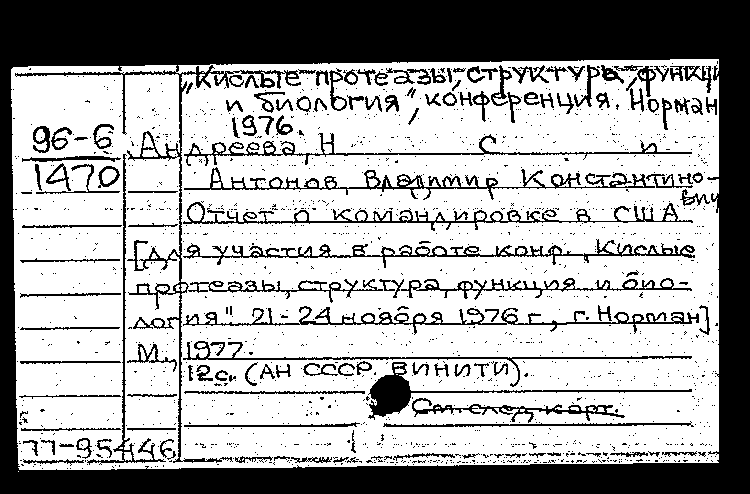 „Кислые протеазы, структура, функци
и биология", конференция. Норман
1976.
96-6
1470
Андреева, Н С и
Антонов, Владимир Константино-
вич
Отчет о командировке в США
[для участия в работе конф. „Кислые
протеазы, структура, функция и био-
логия". 21-24 ноября 1976 г., г. Норман].
М., 1977.
12с. (АН СССР. ВИНИТИ).
См. след. карт.
77-95446